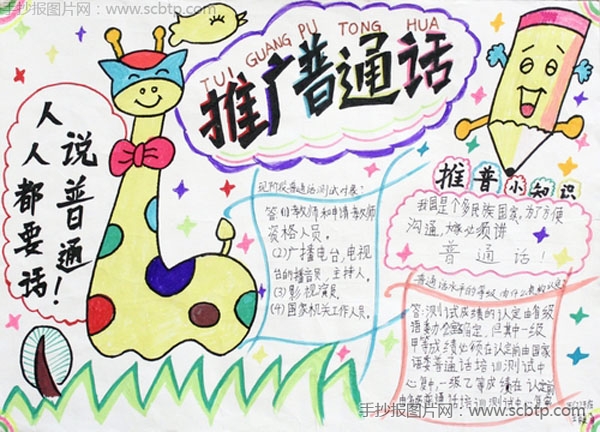 手抄报图片网 - www.scbtp.com
TUI GUANG PU TONG HUA
推广普通话
人人都要话
说普通!
现阶段普通话测试对象:
答:(1)教师和申请教师
资格人员。
(2)广播电台,电视
台的播音员,主持人。
(3)影视演员。
(4)国家机关工作人员。
推普小知识
我国是个多民族国家,为了方便
沟通,大家必须讲
普通话!
普通话水平的等级由什么负责认定?
答:测试成绩的认定由省级
语委办公室确定,但其中一级
甲等成绩必须在认定前由国家
语委普通话培训测试中
心复审,一级乙等成绩在认定前
由省级普通话培训测试中心复审
手抄报图片网 - www.scbtp.com